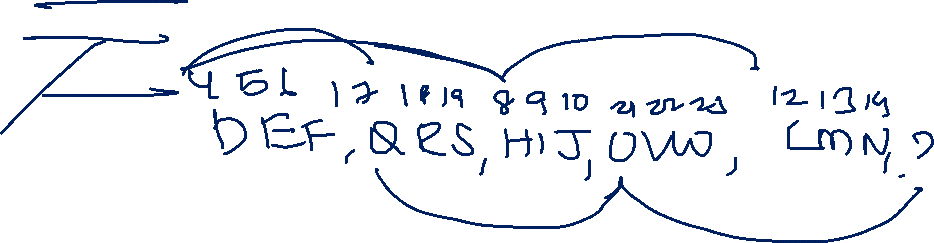 4 5 6 17 18 19 8 9 10 21 22 23 12 13 14
DEF, QRS, HIJ, UVW, LMN, ?